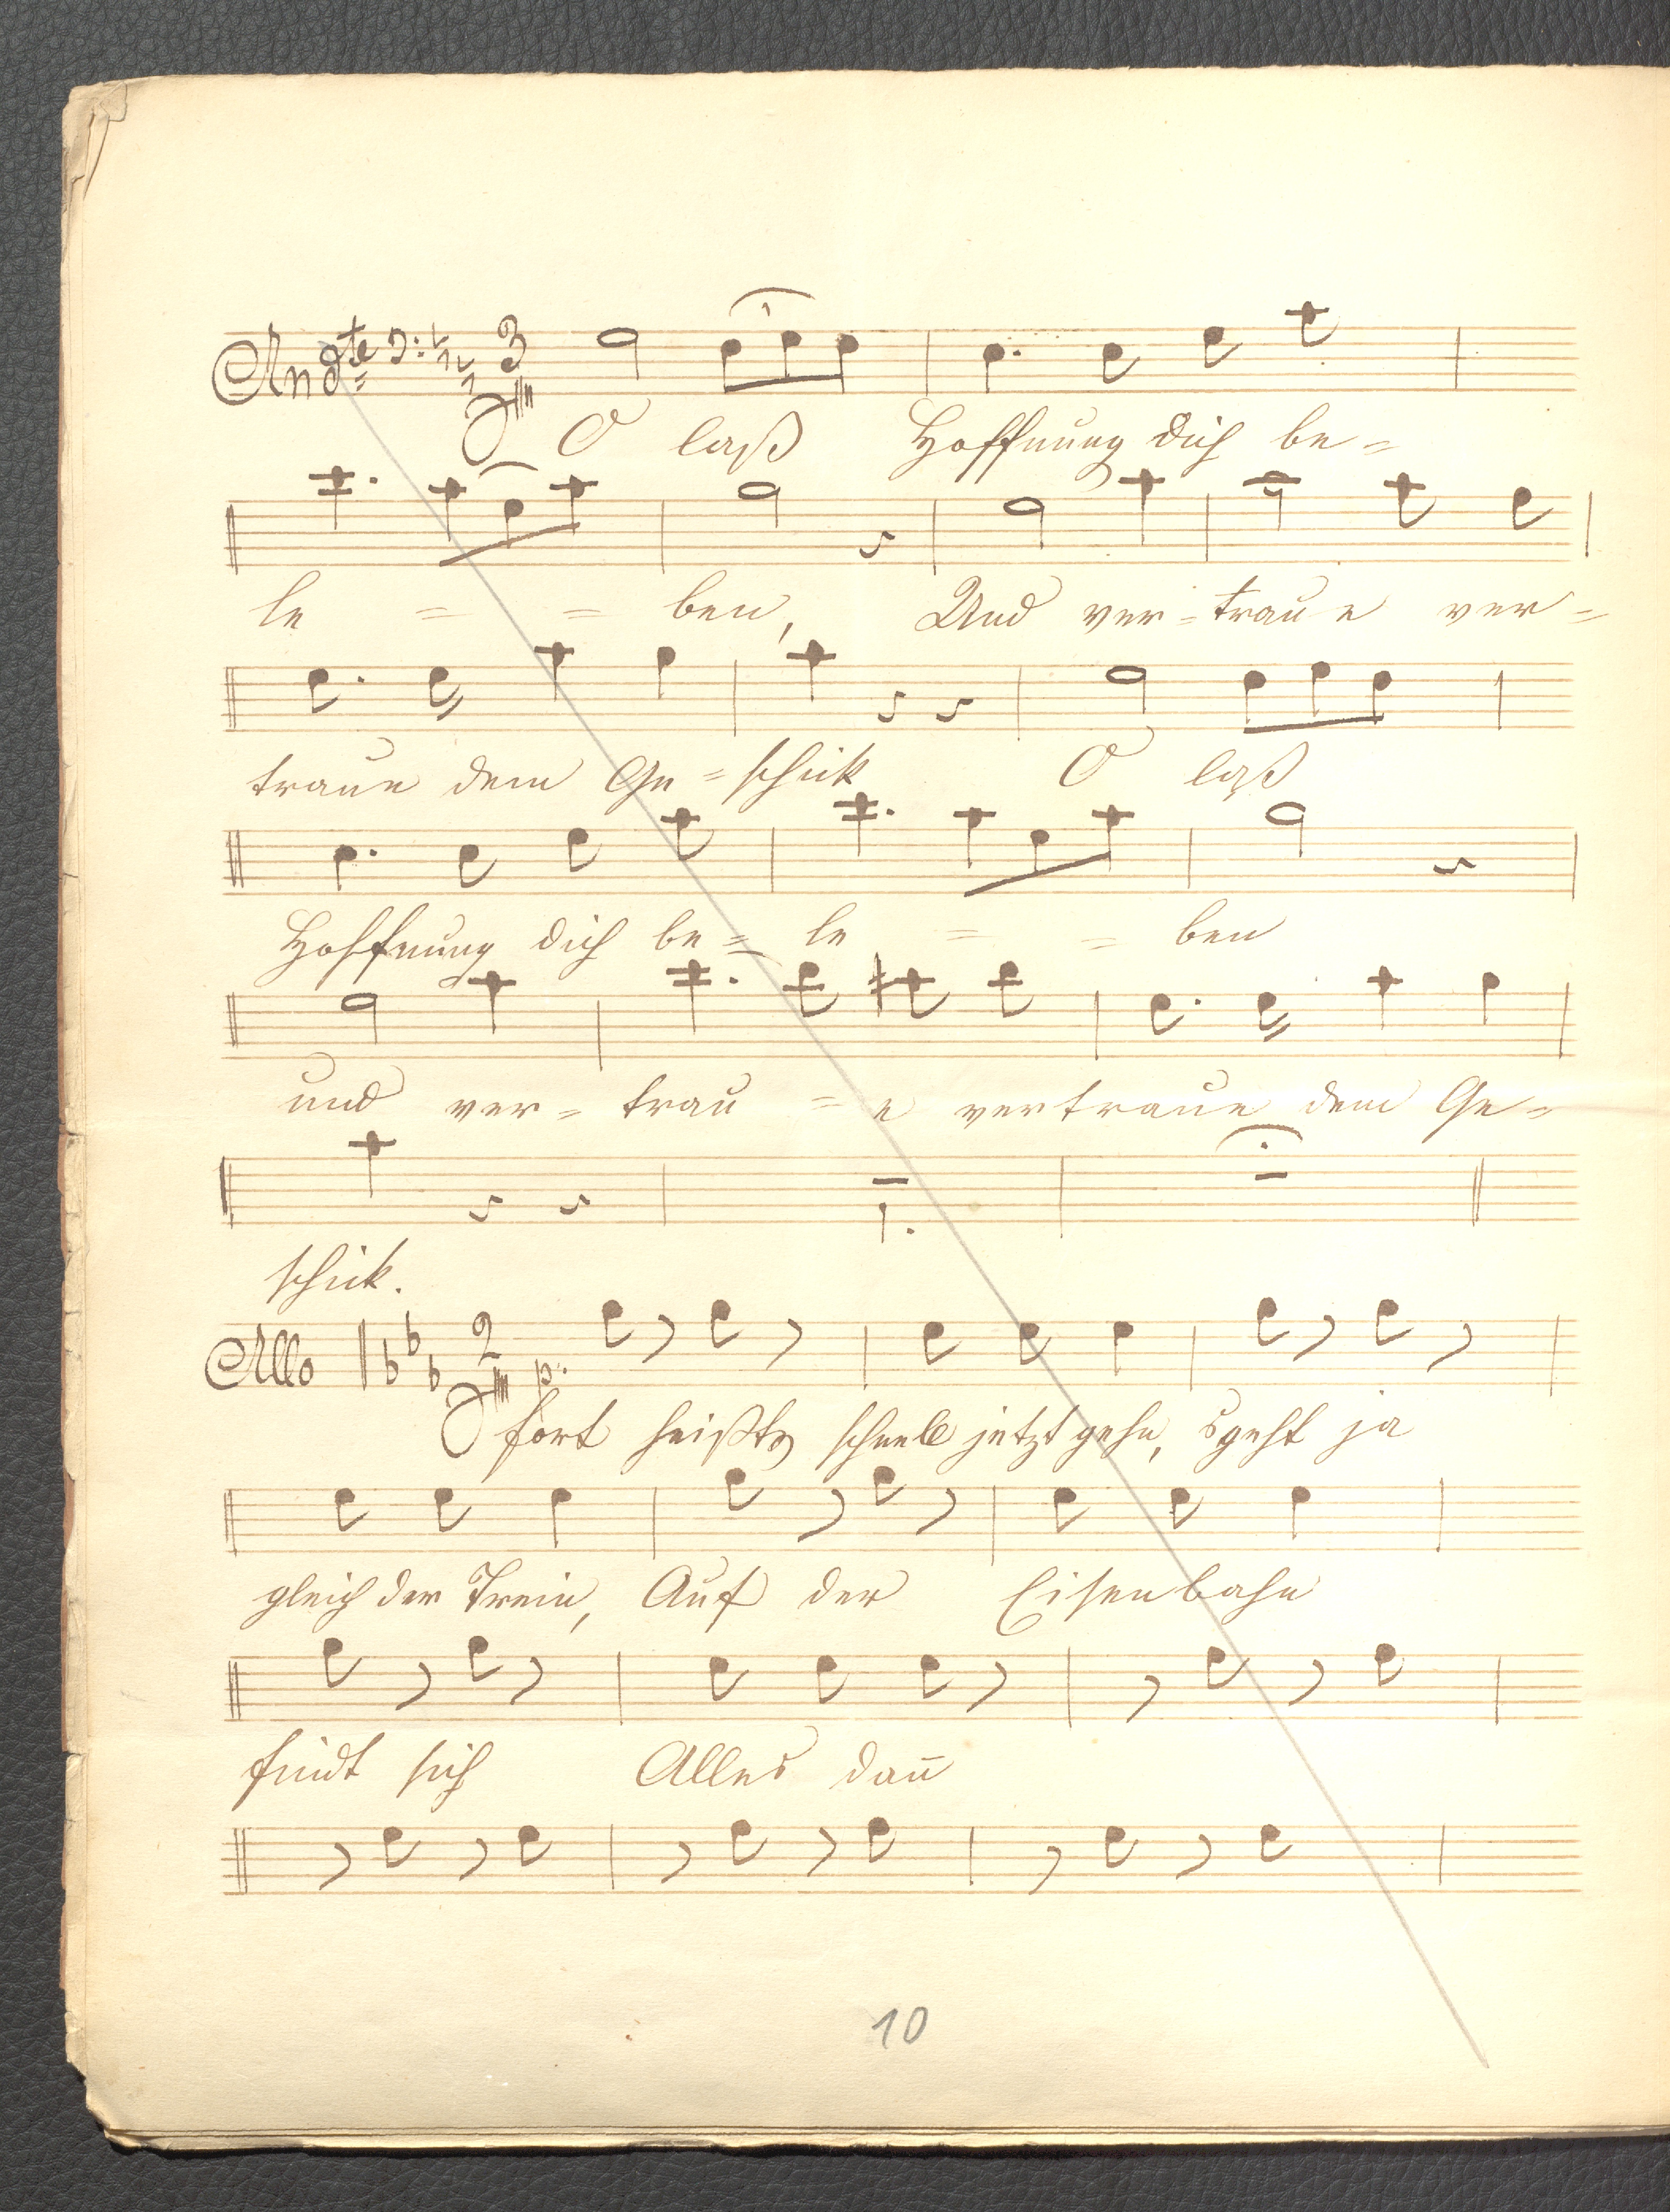 Andte 3/4
O laß Hoffnung dich be-
le = = ben, Und ver-traue ver-
traue dem Ge-schick O laß
Hoffnung dich be-le = = ben
und ver-trau = e vertraue dem Ge-
schick.
Allo 2/4 p.
fort heißts schnell jetzt gehn, s geht ja
gleich der Train, Auf der Eisenbahn
findt sich Alles dañ
10